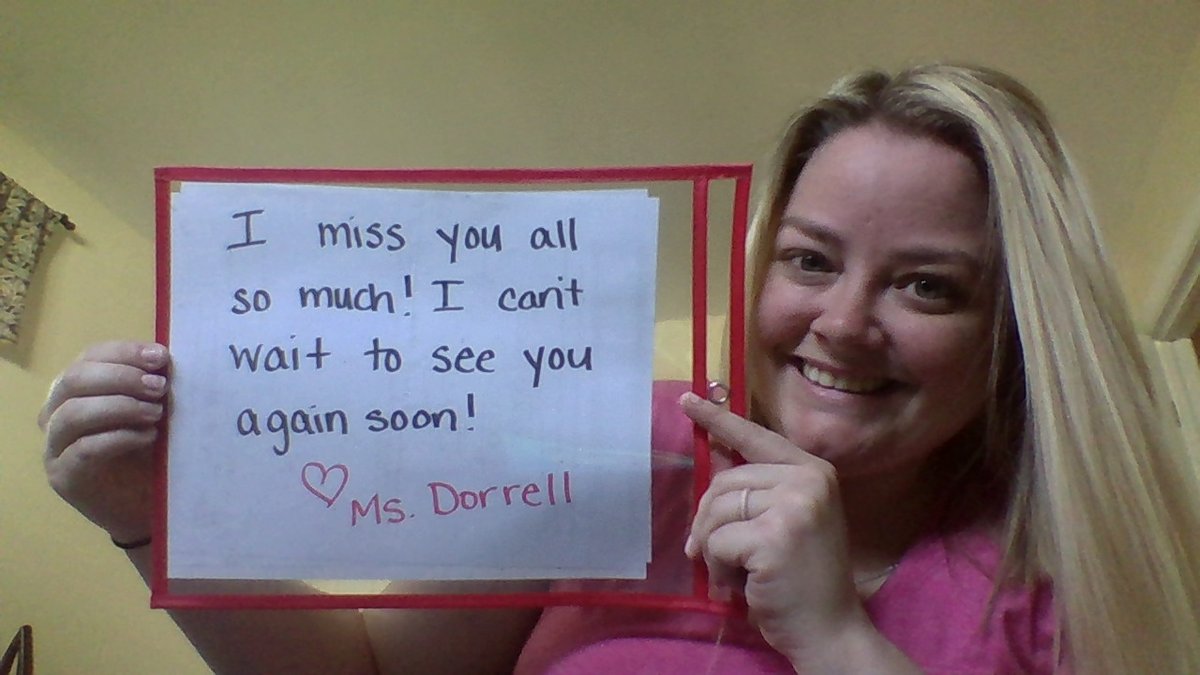 I miss you all
so much! I can't
wait to see you
again soon!
♡ Ms. Dorrell